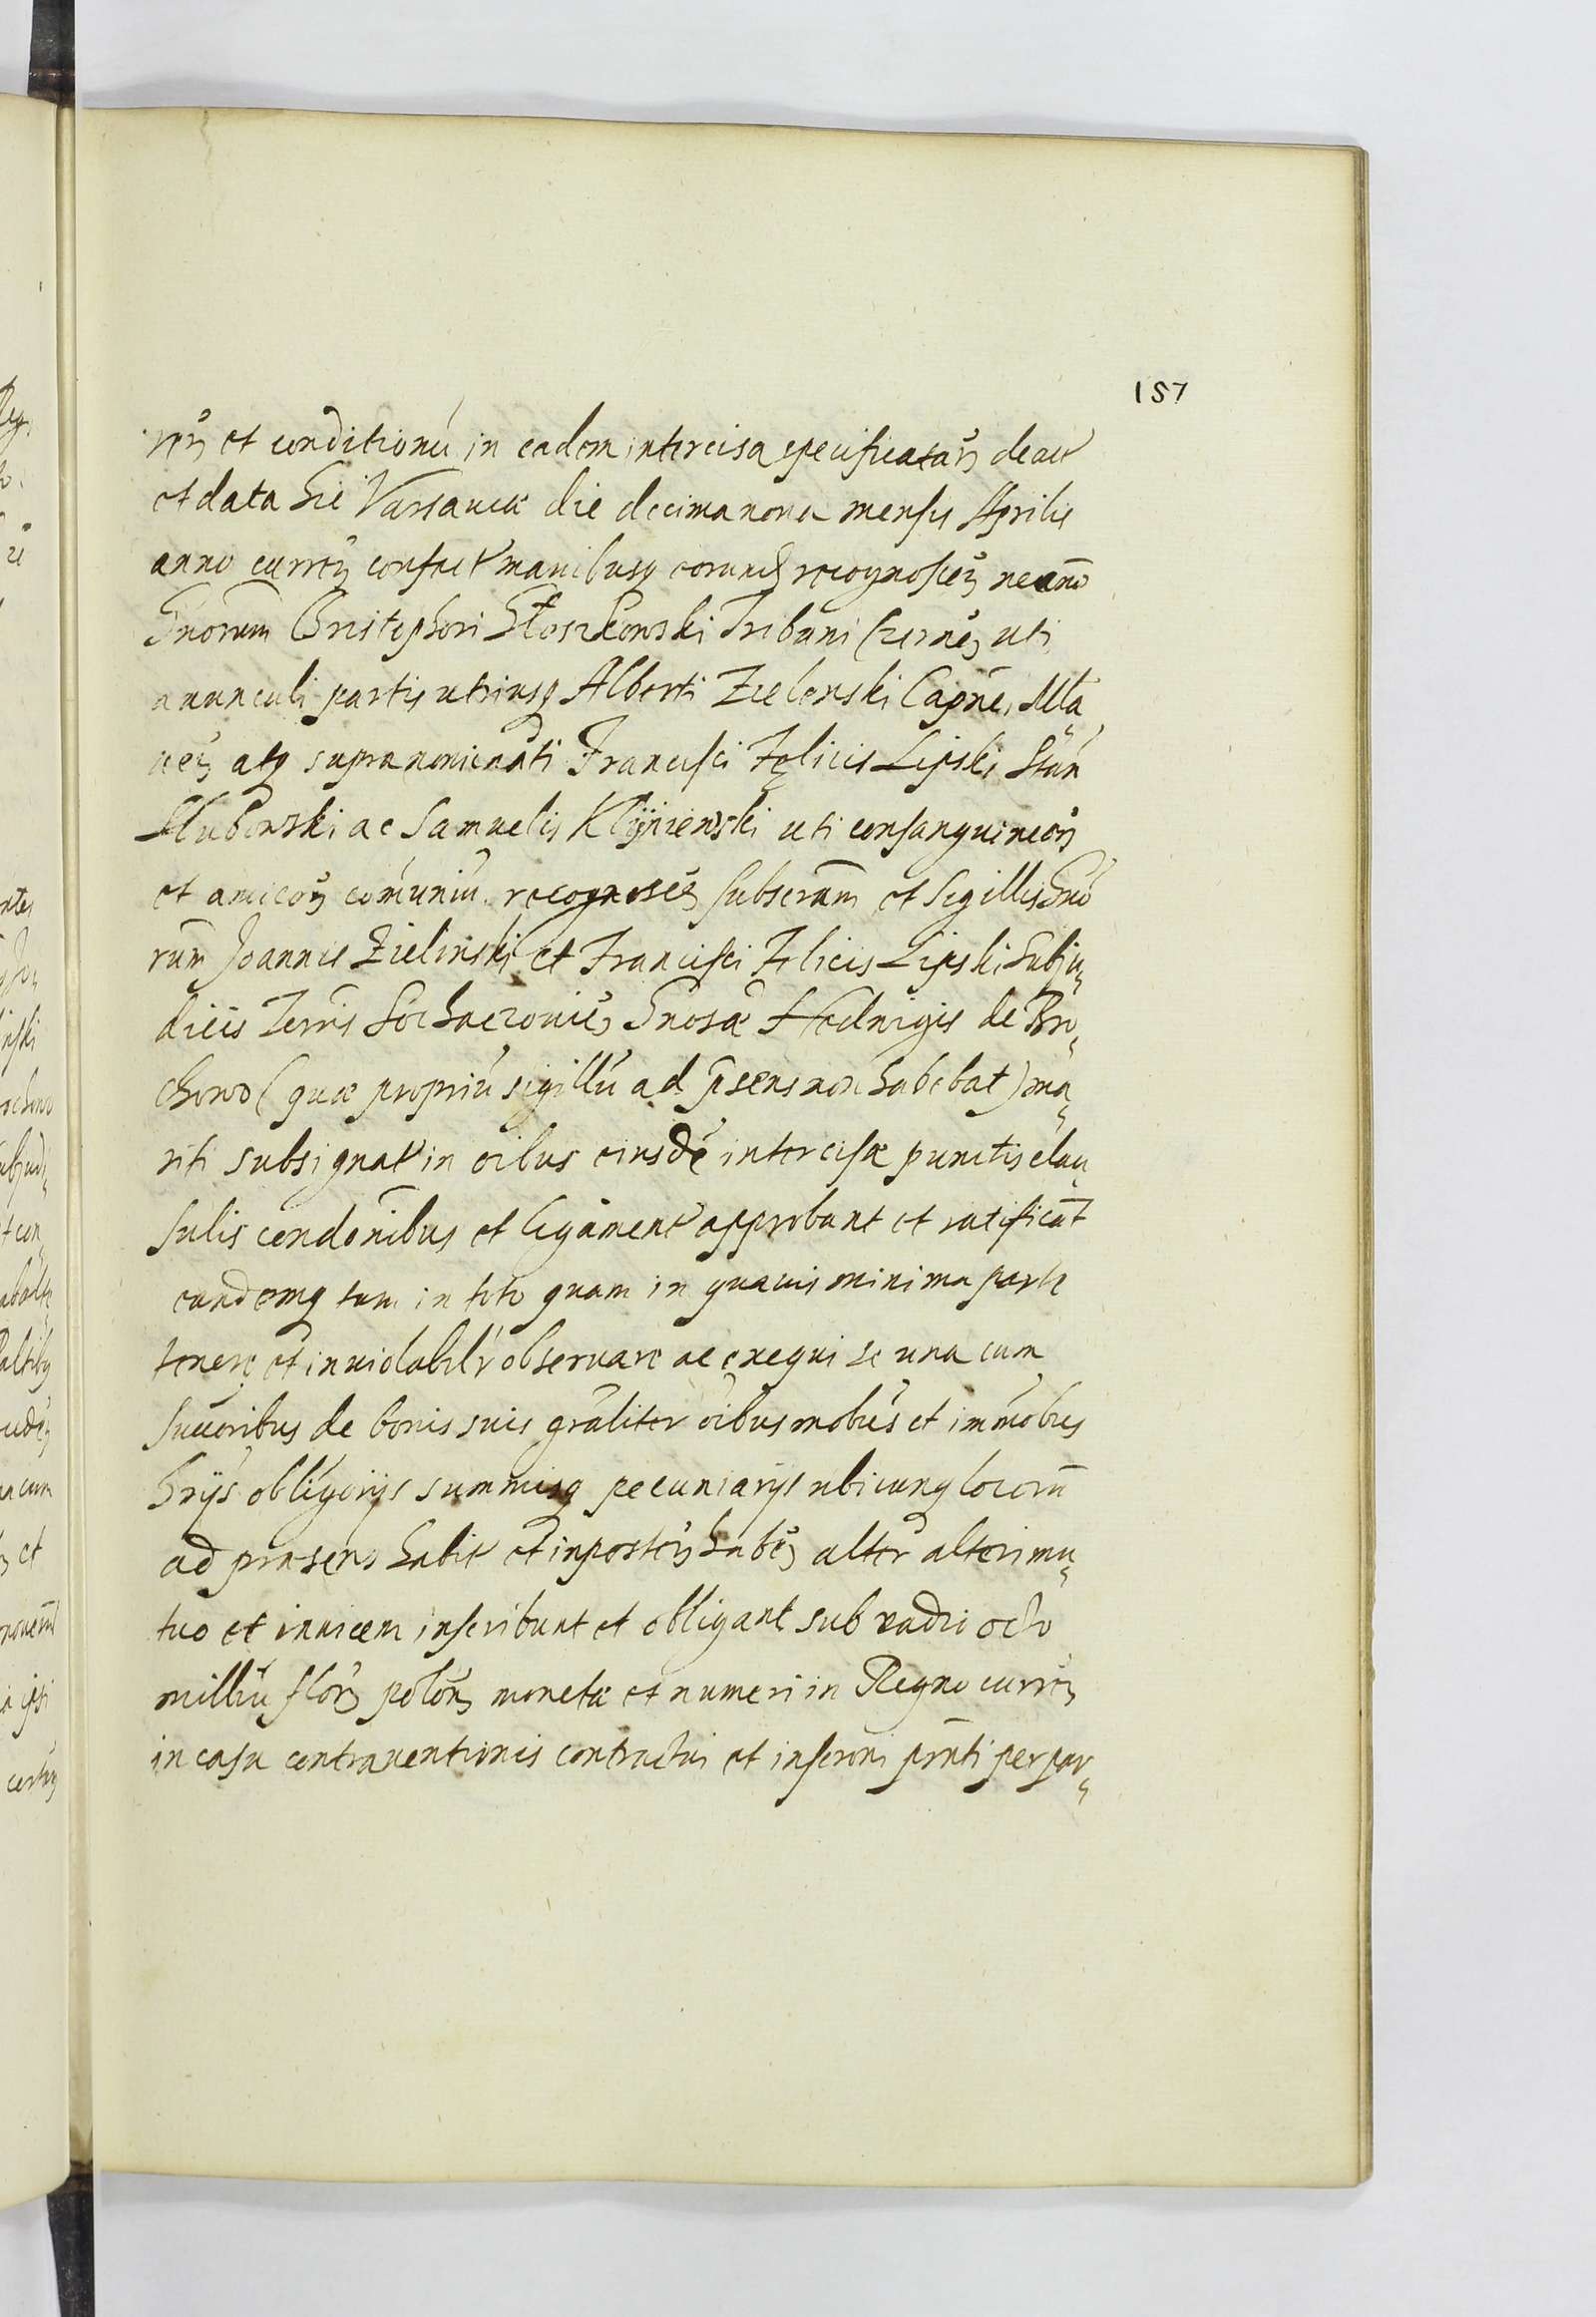 157
reꝝ et conditionū in eadem intercisa specificataꝝ de act
et data hic Varsaviæ die decima nona mensis Aprilis
anno curreñ confect manibusq eorund recognosceñ necnõ
Gnõrum Christophori Głoszkowski Tribuni Czerneñ uti
avunculi partis utriusq Alberti Zielenski Capnei Mła
veñ atq supranominati Francisci Fęlicis Lipski Stan
Młubowski ac Samuelis Klÿniewski uti consanguineoꝝ
et amicoꝝ comuniũ recognosceñ subscram et Sigillis Gnõ
rum Joannis Zielinski et Francisci Felicis Lipski Subju
dicis Terris Sochaczovieñ Gnosæ Hedvigis de Bro
chowo (quæ propriũ sigillũ ad p̃sens non habebat) ma
riti subsignat in oibus eiusdẽ intercisæ punctis clau
sulis condõnibus et ligament approbant et ratificãt
eandemq tam in toto quam in quavis minima parte
tenere et inviolabilr observare ac exequi se una cum
Succoribus de bonis suis grãliter oibus mobus et immobus
hrijs obligorijs summisq pecuniarijs ubicunq locorũ
ad præsens habit et inposteꝝ habeñ alter alteri mu
tuo et invicem inscribunt et obligant sub vadio octo
milliũ floꝝ poloñ monetæ et numeri in Regno curreñ
in casu contraventionis contractui et inscroni prñti per par